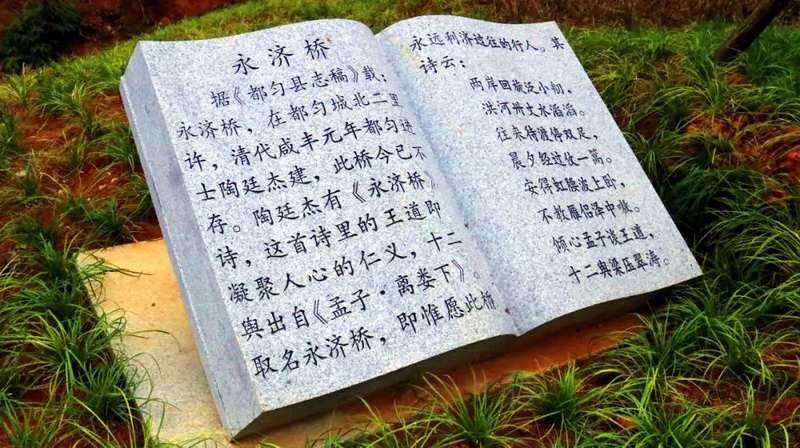 永济桥
据《都匀县志稿》载：
永济桥，在都匀城北二里
许，清代咸丰元年都匀进
士陶廷杰建，此桥今已不
存。陶廷杰有《永济桥》
诗，这首诗里的王道即
凝聚人心的仁义，十二
舆出自《孟子·离娄下》。
取名永济桥，即惟愿此桥
永远利济过往的行人。其
诗云：
两岸回旋泛小舠，
洪河卅丈水滔滔。
往来待渡停双足，
晨夕经过仗一篙。
安得虹腰波上卧，
不教雁侣泽中嗷。
倾心孟子谈王道，
十二舆梁压翠涛。